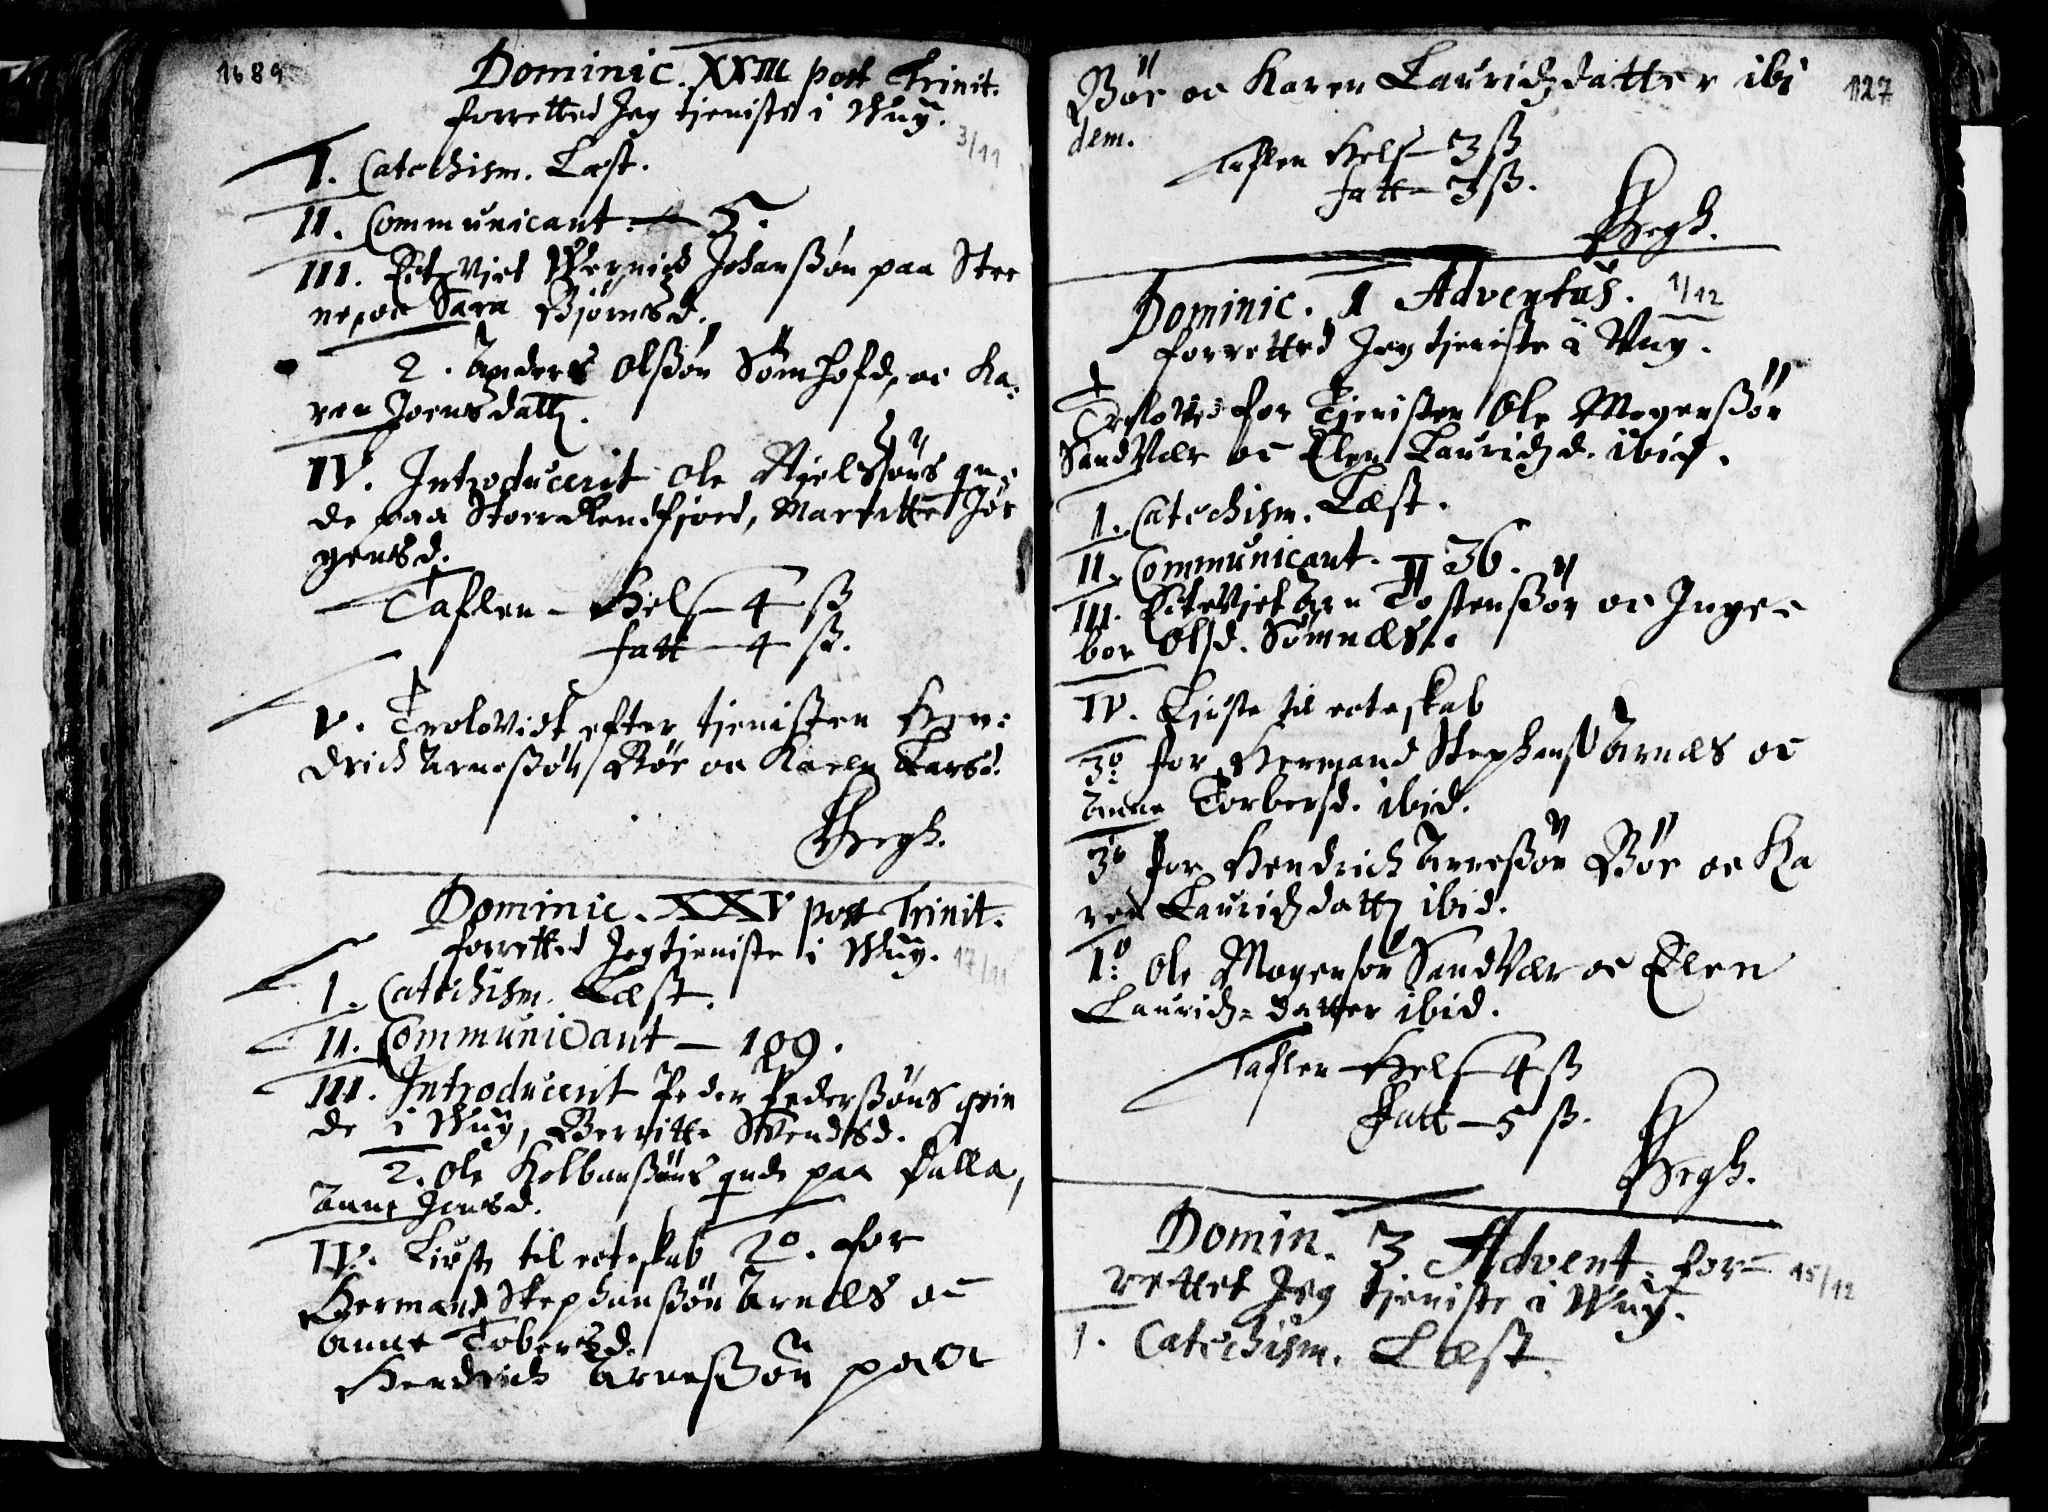 1689
Dominic. XXIII post Trinit.
forretted Jeg tjeniste i Wug.
3/11
I. Catechism. Læst.
II. Communicant. — 5.
III. Ectevjet Johanßøn paa Stee
ne, oc Sara Bjørnsd.
2. Anders Olßøn Sømhofd, oc Ka:
ren Joensdatt.
IV. Introducerit Ole Njelsøns qn:
de paa, Marritte Jør
gensd.
Taflen — Hels — 4 ß
fatt — 4 ß.
V. Trolovidt efter tjenisten Hen:
drich Arneßøn Bøe oc Karen Larsd.
Bergh.
Dominic. XXV post Trinit.
forretted Jeg tjeniste i Wug.
17/11
I. Catechism. Læst.
II. Communicant — 109.
III. Introducerit Peder Pederßøns qvin
de i Wug, Berritte Svendsd.
2. Ole Kolbanßøns qnde paa Falla,
Anne Jensd.
IV. Liuste til ecteskab 2o. for
Hermand Stephanßøn Arnæs oc
Anne Tobersd.
Hendrich Arneßøn paa
127
Bøe oc Karen Lauridzdatter ibi
dem.
Taflen Hels — 3 ß
fatt — 3 ß.
Bergh.
Dominic. 1 Adventus.
1/12
forretted Jeg tjeniste i Wug.
Troloved for Tjenisten Ole Mogenßøn
Sandvær oc Elen Lauridzd. ibid.
I. Catechism. Læst.
II. Communicant. — 36.
III. Ectevjet Arn Tostenßøn oc Inge-
bor Olsd. Sømnæs.
IV. Liuste til ecteskab
3o for Hermand Stephans Arnæs oc
Anne Torbersd. ibid.
3o for Hendrich Arneßøn Bøe oc Ka
ren Lauridzdatt ibid.
1o. Ole Mogensøn Sandvær oc Elen
Lauridz-datter ibid.
Taflen Hels — 4 ß
Fatt — 5 ß.
Bergh.
Domin. 3 Advent for-
rettet Jeg tjeniste i Wug.
15/12
I. Catechism. Læst.